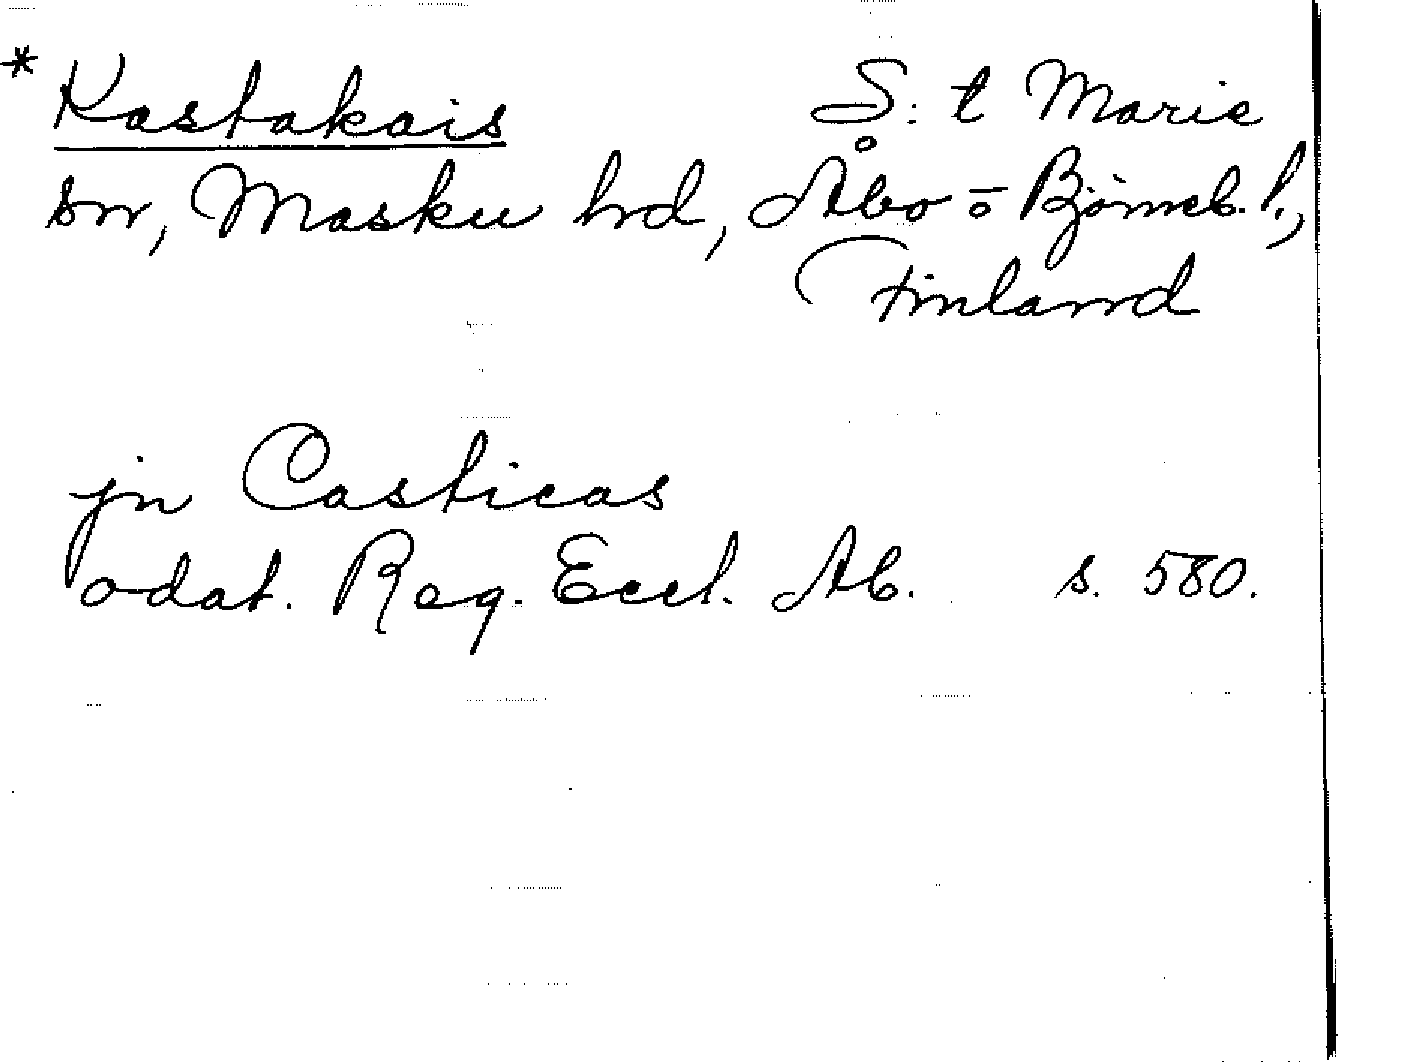 * Kastakais S:t Marie
sn, Masku hd, Åbo o Björneb. l.,
Finland
jn Casticas
odat. Reg. Eccl. Ab. s. 580.